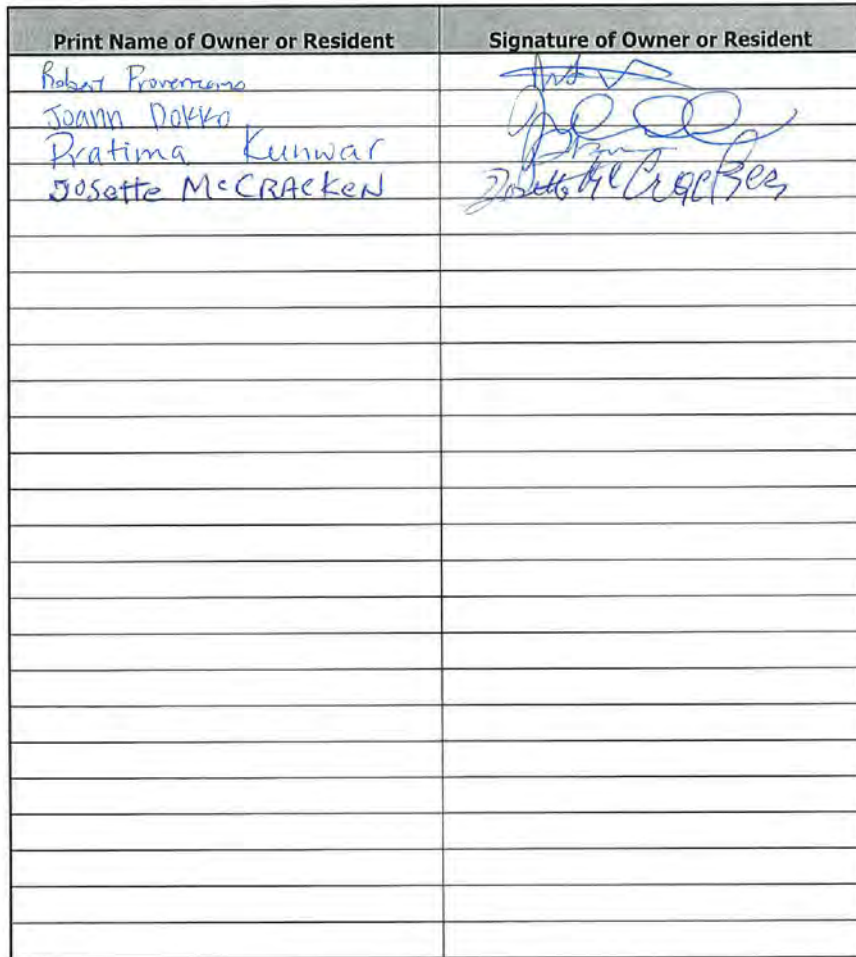 Print Name of Owner or Resident Signature of Owner or Resident
Robert
Joann Dokko
Pratima Kunwar
Josette McCRACKEN Josette McCracken